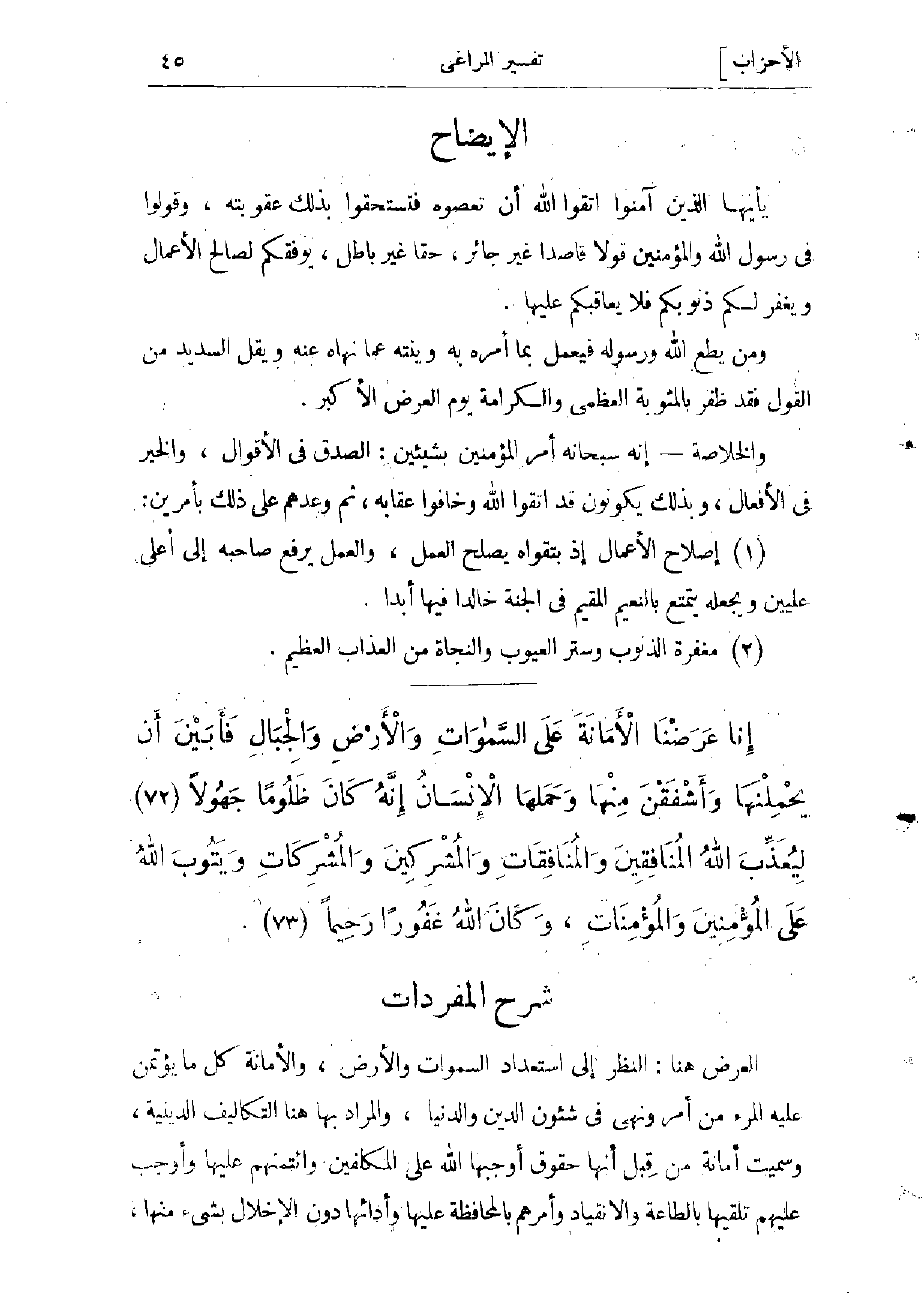 الأحزاب] تفسير المراغى ٤٥
الإيضاح
يأيها الذين آمنوا اتقوا الله أن تعصوه فتستحقوا بذلك عقوبته ، وقولوا
فى رسول الله والمؤمنين قولا قاصدا غير جائر ، حقا غير باطل ، يوفقكم لصالح الأعمال
ويغفر لكم ذنوبكم فلا يعاقبكم عليها .
ومن يطع الله ورسوله فيعمل بما أمره به وينته عما نهاه عنه ويقل السديد من
القول فقد ظفر بالمثوبة العظمى والكرامة يوم العرض الأكبر .
والخلاصة – إنه سبحانه أمر المؤمنين بشيئين : الصدق فى الأقوال ، والخير
فى الأفعال ، وبذلك يكونون قد اتقوا الله وخافوا عقابه ، ثم وعدهم على ذلك بأمرين :
(١) إصلاح الأعمال إذ بتقواه يصلح العمل ، والعمل يرفع صاحبه إلى أعلى
عليين ويجعله يتمتع بالنعيم المقيم فى الجنة خالدا فيها أبدا .
(٢) مغفرة الذنوب وستر العيوب والنجاة من العذاب العظيم .
إِنا عَرَضْنَا الْأَمَانَةَ عَلَى السَّمٰوَاتِ وَالْأَرْضِ وَالْجِبَالِ فَأَبَيْنَ أَن
يَحْمِلْنَهَا وَأَشْفَقْنَ مِنْهَا وَحَمَلَهَا الْإِنْسَانُ إِنَّهُ كَانَ ظَلُومًا جَهُولاً (٧٢)
لِيُعَذِّبَ اللهُ الْمُنَافِقِينَ وَالْمُنَافِقَاتِ وَالْمُشْرِكِينَ وَالْمُشْرِكَاتِ وَيَتُوبَ اللهُ
عَلَى الْمُؤْمِنِينَ وَالْمُؤْمِنَاتِ ، وَكَانَ اللهُ غَفُورًا رَحِيماً (٧٣) .
شرح المفردات
العرض هنا : النظر إلى استعداد السموات والأرض ، والأمانة كل ما يؤتمن
عليه المرء من أمر ونهى فى شئون الدين والدنيا ، والمراد بها هنا التكاليف الدينية ،
وسميت أمانة من قِبل أنها حقوق أوجبها الله على المكلفين وائتمنهم عليها وأوجب
عليهم تلقيها بالطاعة والانقياد وأمرهم بالمحافظة عليها وأدائها دون الإخلال بشىء منها ،